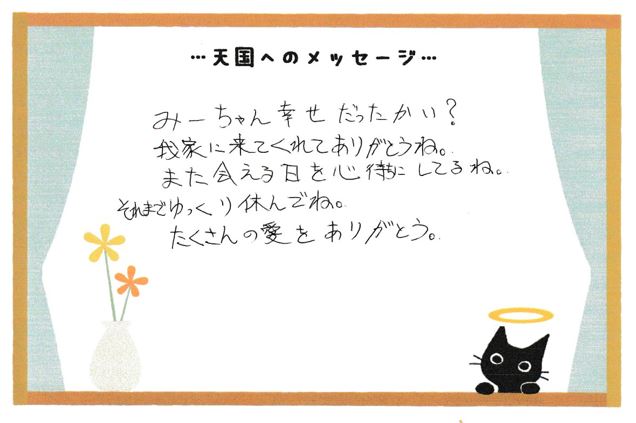 …天国へのメッセージ…
みーちゃん幸せだったかい？
我家に来てくれてありがとうね。
また会える日を心待にしてるね。
それまでゆっくり休んでね。
たくさんの愛をありがとう。